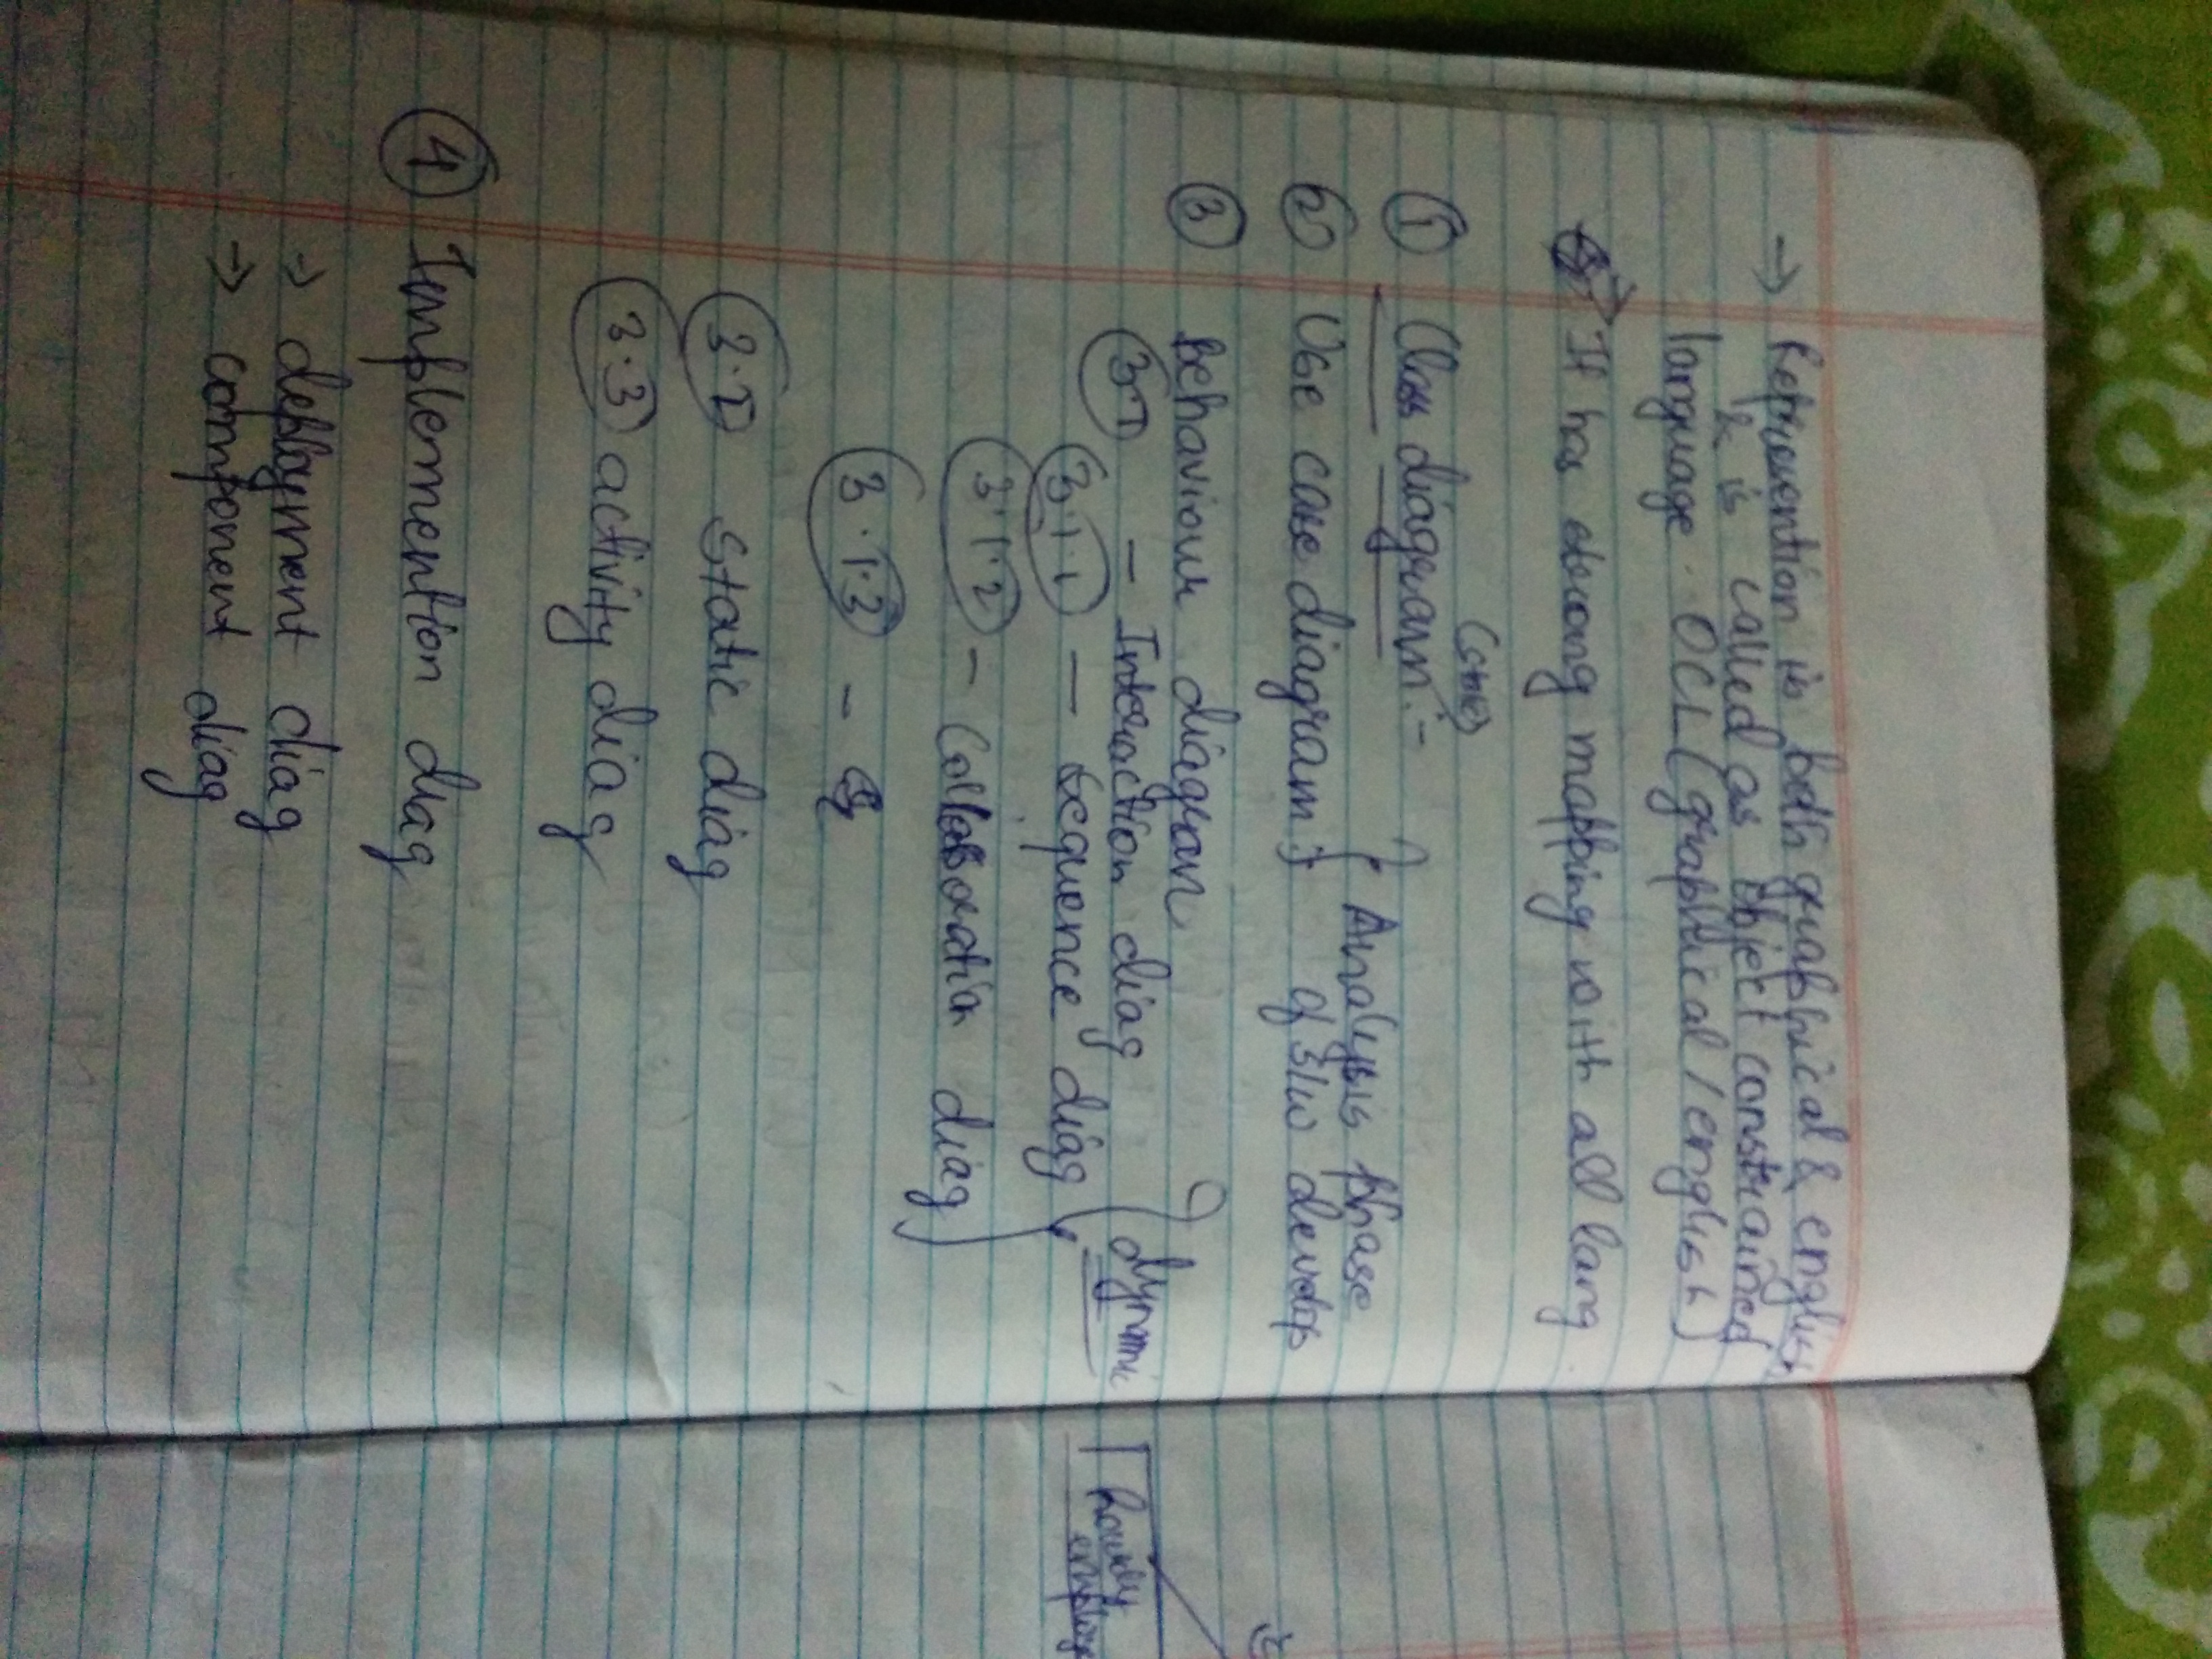 → Representation is both graphical & english
& is called as Object constrained
language. OCL (graphical / english)
→ It has strong mapping with all lang
① Class diagram :-
② Use case diagram } { Analysis phase
of s/w develop
③ Behaviour diagram
3.1 - Interaction diag
3.1.1 — Sequence diag } dynmi
3.1.2 - Collaboration diag
3.1.3 -
3.2 Static diag
3.3 activity diag
④ Implemention diag
→ deployment diag
→ component diag
hourly